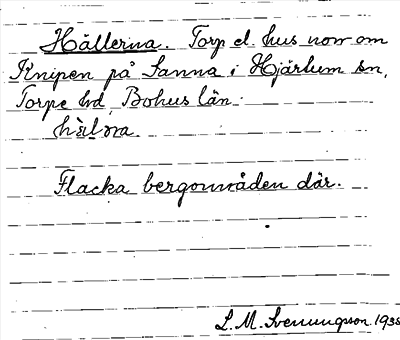 Hällerna. Torp el. hus norr om
Knipen på Sanna i Hjärtum sn,
Torpe hd, Bohus län.
Flacka bergområden där.
L. M. Svenungsson 1935